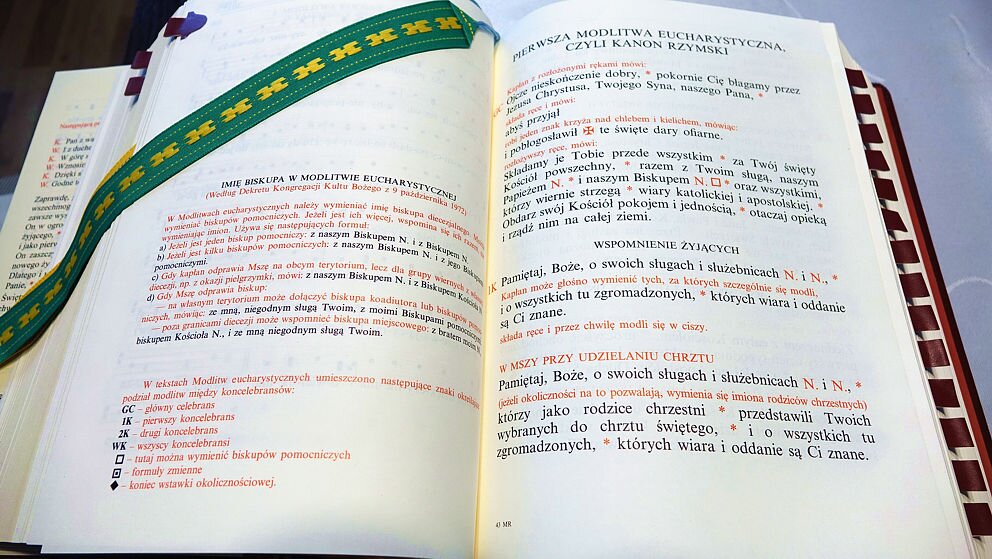 Następującą p
K. Pan z wa
W. I z duche
K. W górę s
W. Wznosim
K. Dzięki s
W. Godne t
Zaprawdę,
wszechmog
zawsze wys
On w ogro
żyjącego,
i jako pierw
On zaszc
nowego ży
Dlatego
Panie, *
Święt
IMIĘ BISKUPA W MODLITWIE EUCHARYSTYCZNEJ
(Według Dekretu Kongregacji Kultu Bożego z 9 października 1972)
W Modlitwach eucharystycznych należy wymieniać imię biskupa diecezjalnego.
wymieniać biskupów pomocniczych. Jeżeli jest ich więcej, wspomina się ich razem,
wymieniając imion. Używa się następujących formuł:
a) Jeżeli jest jeden biskup pomocniczy: z naszym Biskupem N. i z Biskupem N.
b) Jeżeli jest kilku biskupów pomocniczych: z naszym Biskupem N. i z jego Biskupami
pomocniczymi.
c) Gdy kapłan odprawia Mszę na obcym terytorium, lecz dla grupy wiernych z własnej
diecezji, np. z okazji pielgrzymki, mówi: z naszym Biskupem N. i z Biskupem Kościoła
d) Gdy Mszę odprawia biskup:
— na własnym terytorium może dołączyć biskupa koadiutora lub biskupów pomoc-
niczych, mówiąc: ze mną, niegodnym sługą Twoim, z moimi Biskupami pomocniczymi
— poza granicami diecezji może wspomnieć biskupa miejscowego: z bratem moim N.
biskupem Kościoła N., i ze mną niegodnym sługą Twoim.
W tekstach Modlitw eucharystycznych umieszczono następujące znaki określające
podział modlitw między koncelebransów:
GC – główny celebrans
1K – pierwszy koncelebrans
2K – drugi koncelebrans
WK – wszyscy koncelebransi
□ – tutaj można wymienić biskupów pomocniczych
▣ – formuły zmienne
◆ – koniec wstawki okolicznościowej.
PIERWSZA MODLITWA EUCHARYSTYCZNA,
CZYLI KANON RZYMSKI
Kapłan z rozłożonymi rękami mówi:
GC Ojcze nieskończenie dobry, * pokornie Cię błagamy przez
Jezusa Chrystusa, Twojego Syna, naszego Pana, *
składa ręce i mówi:
abyś przyjął
robi jeden znak krzyża nad chlebem i kielichem, mówiąc:
i pobłogosławił ✠ te święte dary ofiarne.
Rozłożywszy ręce, mówi:
Składamy je Tobie przede wszystkim * za Twój święty
Kościół powszechny, * razem z Twoim sługą, naszym
Papieżem N. * i naszym Biskupem N. □ * oraz wszystkimi,
którzy wiernie strzegą * wiary katolickiej i apostolskiej. *
Obdarz swój Kościół pokojem i jednością, * otaczaj opieką
i rządź nim na całej ziemi.
WSPOMNIENIE ŻYJĄCYCH
1K Pamiętaj, Boże, o swoich sługach i służebnicach N. i N., *
Kapłan może głośno wymienić tych, za których szczególnie się modli,
i o wszystkich tu zgromadzonych, * których wiara i oddanie
są Ci znane.
składa ręce i przez chwilę modli się w ciszy.
W MSZY PRZY UDZIELANIU CHRZTU
Pamiętaj, Boże, o swoich sługach i służebnicach N. i N., *
(jeżeli okoliczności na to pozwalają, wymienia się imiona rodziców chrzestnych)
którzy jako rodzice chrzestni * przedstawili Twoich
wybranych do chrztu świętego, * i o wszystkich tu
zgromadzonych, * których wiara i oddanie są Ci znane.
43 MR